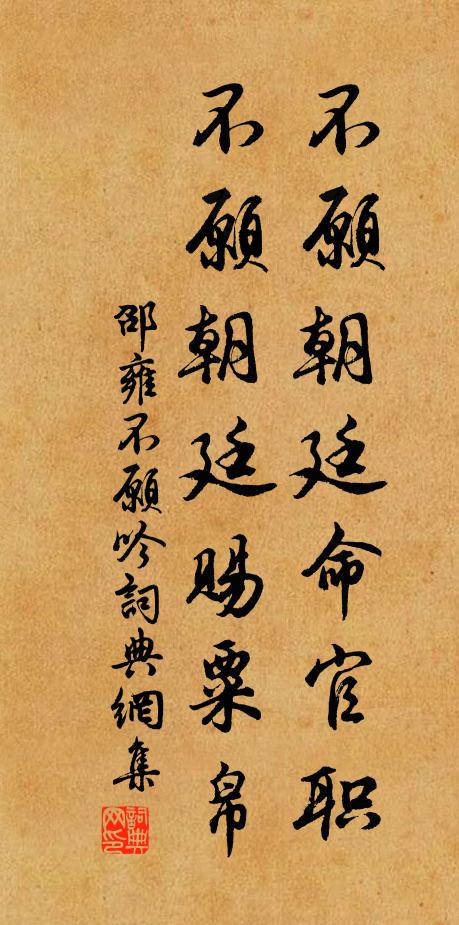 不願朝廷命官职
不願朝廷賜粟帛
邵雍不願吟詞典網集
詞典网印